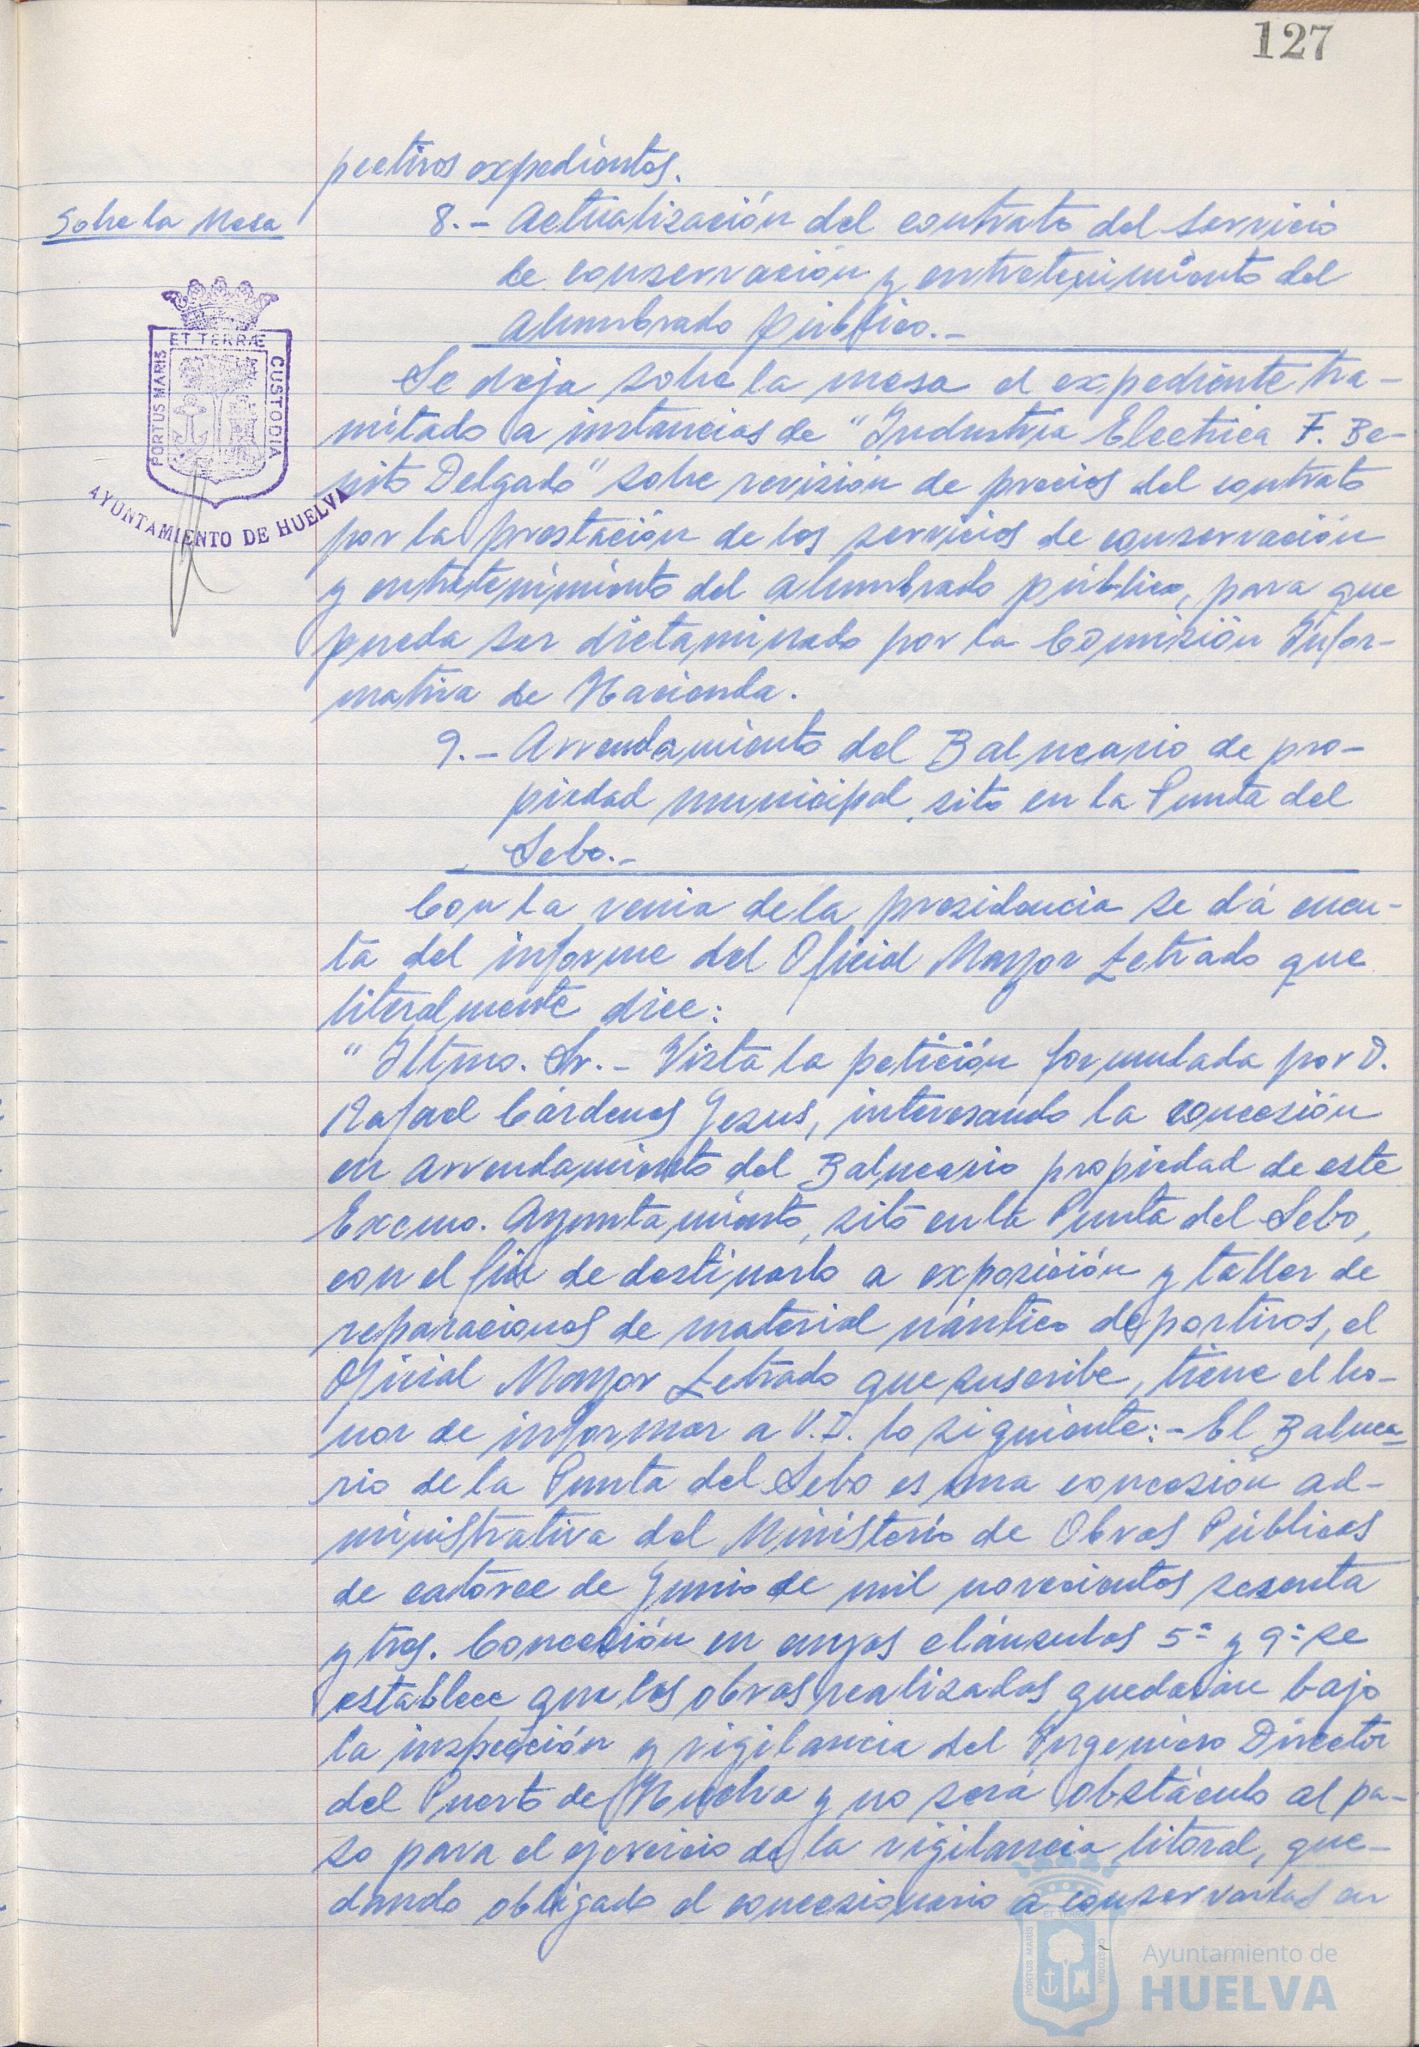 127
pectivos expedientes.
Sobre la Mesa
8.- Actualización del contrato del servicio
de conservación y entretenimiento del
alumbrado público.-
ET TERRÆ
PORTUS MARIS
CUSTODIA
AYUNTAMIENTO DE HUELVA
Se deja sobre la mesa el expediente tra-
mitado a instancias de "Industria Electrica F. Be-
nito Delgado" sobre revisión de precios del contrato
por la prestación de los servicios de conservación
y entretenimiento del alumbrado público, para que
pueda ser dictaminado por la Comisión Infor-
mativa de Hacienda.
9.- Arrendamiento del Balneario de pro-
piedad municipal, sito en la Punta del
Sebo.-
Con la venia de la presidencia se dá cuen-
ta del informe del Oficial Mayor Letrado que
literalmente dice:
"Iltmo. Sr.- Vista la petición formulada por D.
Rafael Cárdenas Jesus, interesando la concesión
en arrendamiento del Balneario propiedad de este
Excmo. Ayuntamiento, sito en la Punta del Sebo,
con el fin de destinarlo a exposición y taller de
reparaciones de material náutico deportivos, el
Oficial Mayor Letrado que suscribe, tiene el ho-
nor de informar a V.I. lo siguiente:- El Balnea-
rio de la Punta del Sebo es una concesión ad-
ministrativa del Ministerio de Obras Públicas
de catorce de Junio de mil novecientos sesenta
y tres. Concesión en cuyas cláusulas 5ª y 9ª se
establece que las obras realizadas quedarán bajo
la inspección y vigilancia del Ingeniero Director
del Puerto de Huelva y no será obstáculo al pa-
so para el ejercicio de la vigilancia litoral, que-
dando obligado el concesionario a conservarlas en
ET TERRÆ
PORTUS MARIS
CUSTODIA
Ayuntamiento de
HUELVA